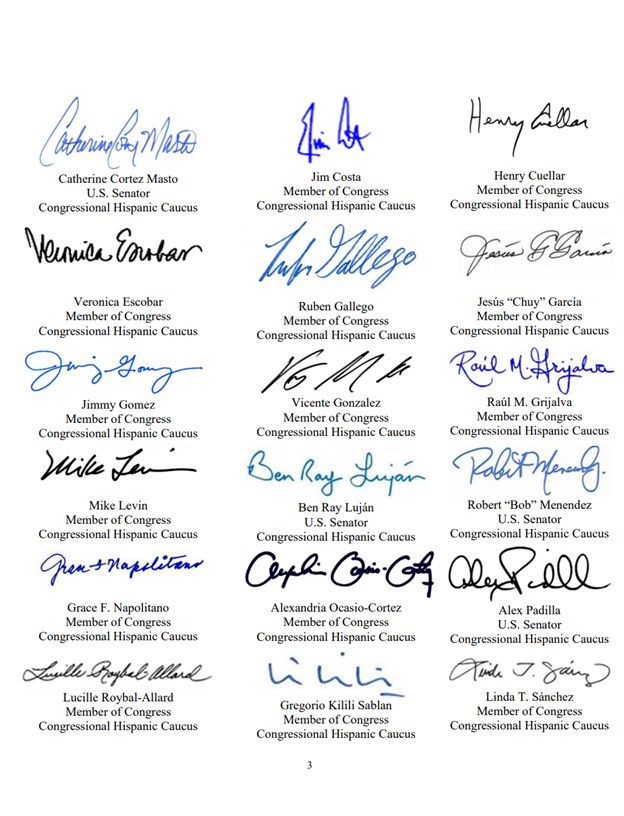 Catherine Cortez Masto
Catherine Cortez Masto
U.S. Senator
Congressional Hispanic Caucus
Jim
Jim Costa
Member of Congress
Congressional Hispanic Caucus
Henry Cuellar
Henry Cuellar
Member of Congress
Congressional Hispanic Caucus
Veronica Escobar
Veronica Escobar
Member of Congress
Congressional Hispanic Caucus
Gallego
Ruben Gallego
Member of Congress
Congressional Hispanic Caucus
Jesús G García
Jesús “Chuy” García
Member of Congress
Congressional Hispanic Caucus
Jimmy Gomez
Jimmy Gomez
Member of Congress
Congressional Hispanic Caucus
Vicente Gonzalez
Member of Congress
Congressional Hispanic Caucus
Raúl M. Grijalva
Raúl M. Grijalva
Member of Congress
Congressional Hispanic Caucus
Mike Levin
Mike Levin
Member of Congress
Congressional Hispanic Caucus
Ben Ray Luján
Ben Ray Luján
U.S. Senator
Congressional Hispanic Caucus
Robert Menendez
Robert “Bob” Menendez
U.S. Senator
Congressional Hispanic Caucus
Grace F Napolitano
Grace F. Napolitano
Member of Congress
Congressional Hispanic Caucus
Alexandria Ocasio-Cortez
Member of Congress
Congressional Hispanic Caucus
Alex Padilla
Alex Padilla
U.S. Senator
Congressional Hispanic Caucus
Lucille Roybal-Allard
Lucille Roybal-Allard
Member of Congress
Congressional Hispanic Caucus
Gregorio Kilili Sablan
Member of Congress
Congressional Hispanic Caucus
Linda T. Sánchez
Linda T. Sánchez
Member of Congress
Congressional Hispanic Caucus
3